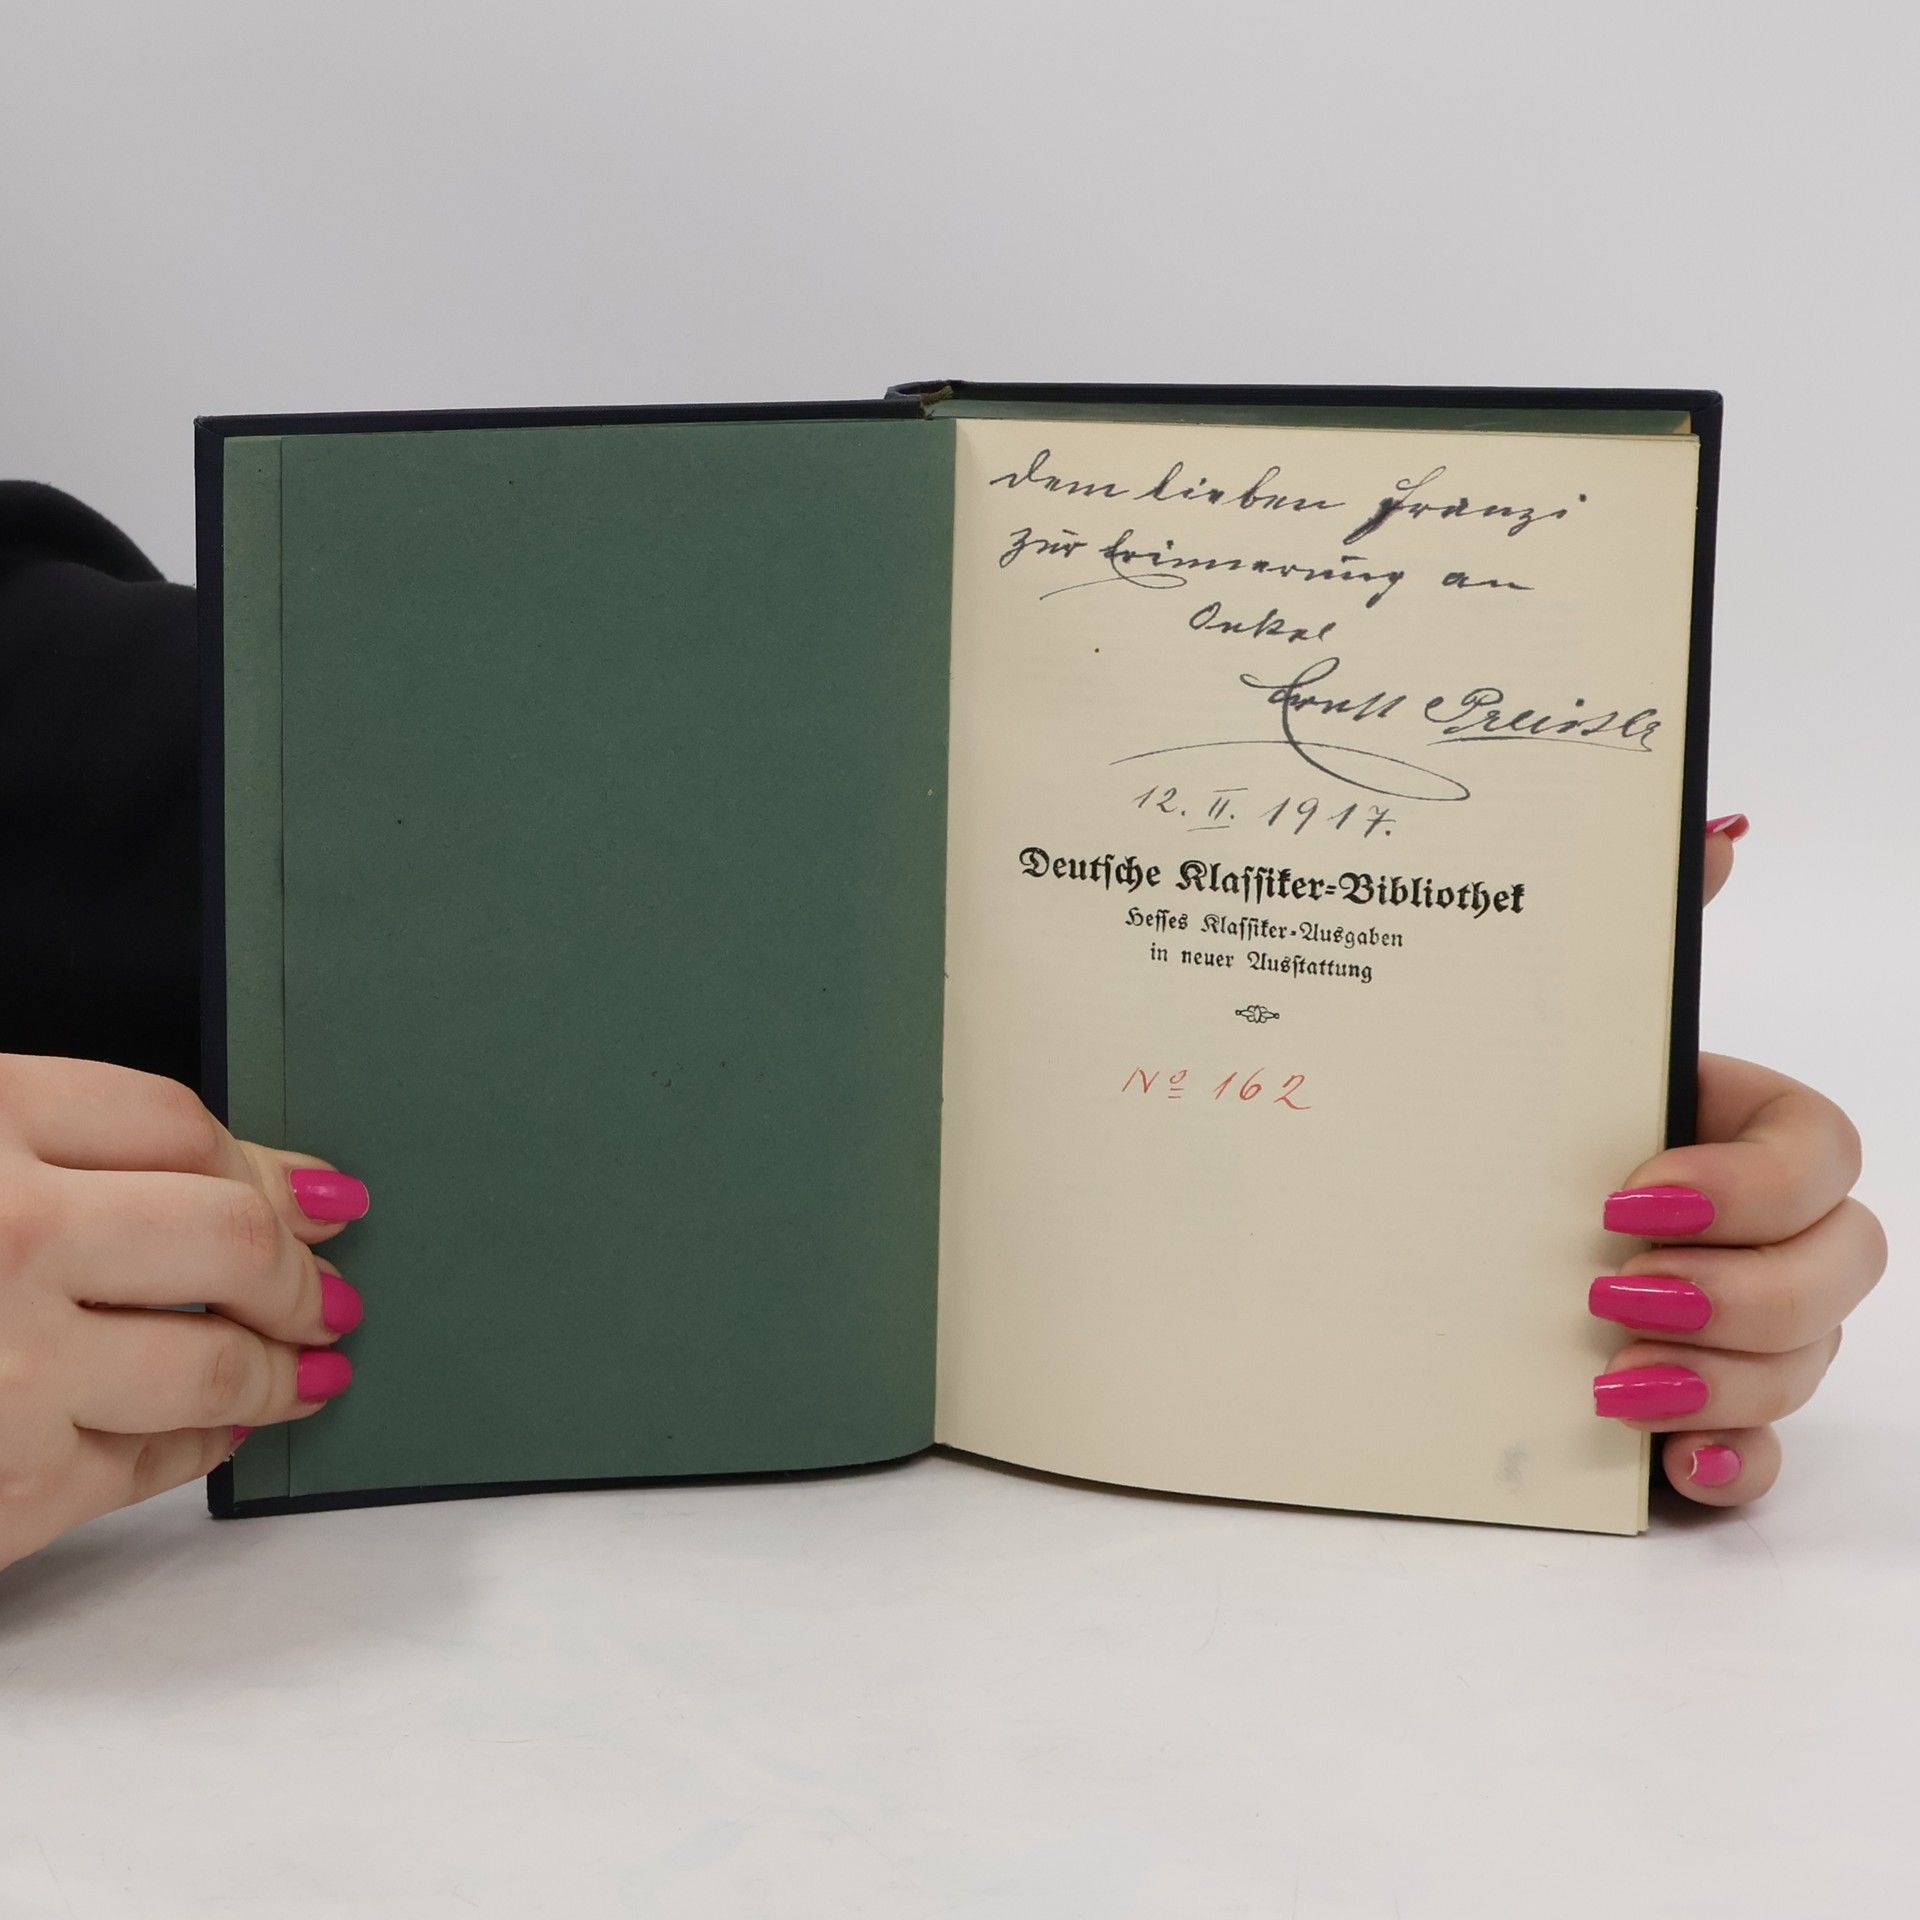 Dem lieben Franzi
zur Erinnerung an
Onkel
Ernst
12. II. 1917.
Deutsche Klassiker=Bibliothek
Hesses Klassiker=Ausgaben
in neuer Ausstattung
No 162